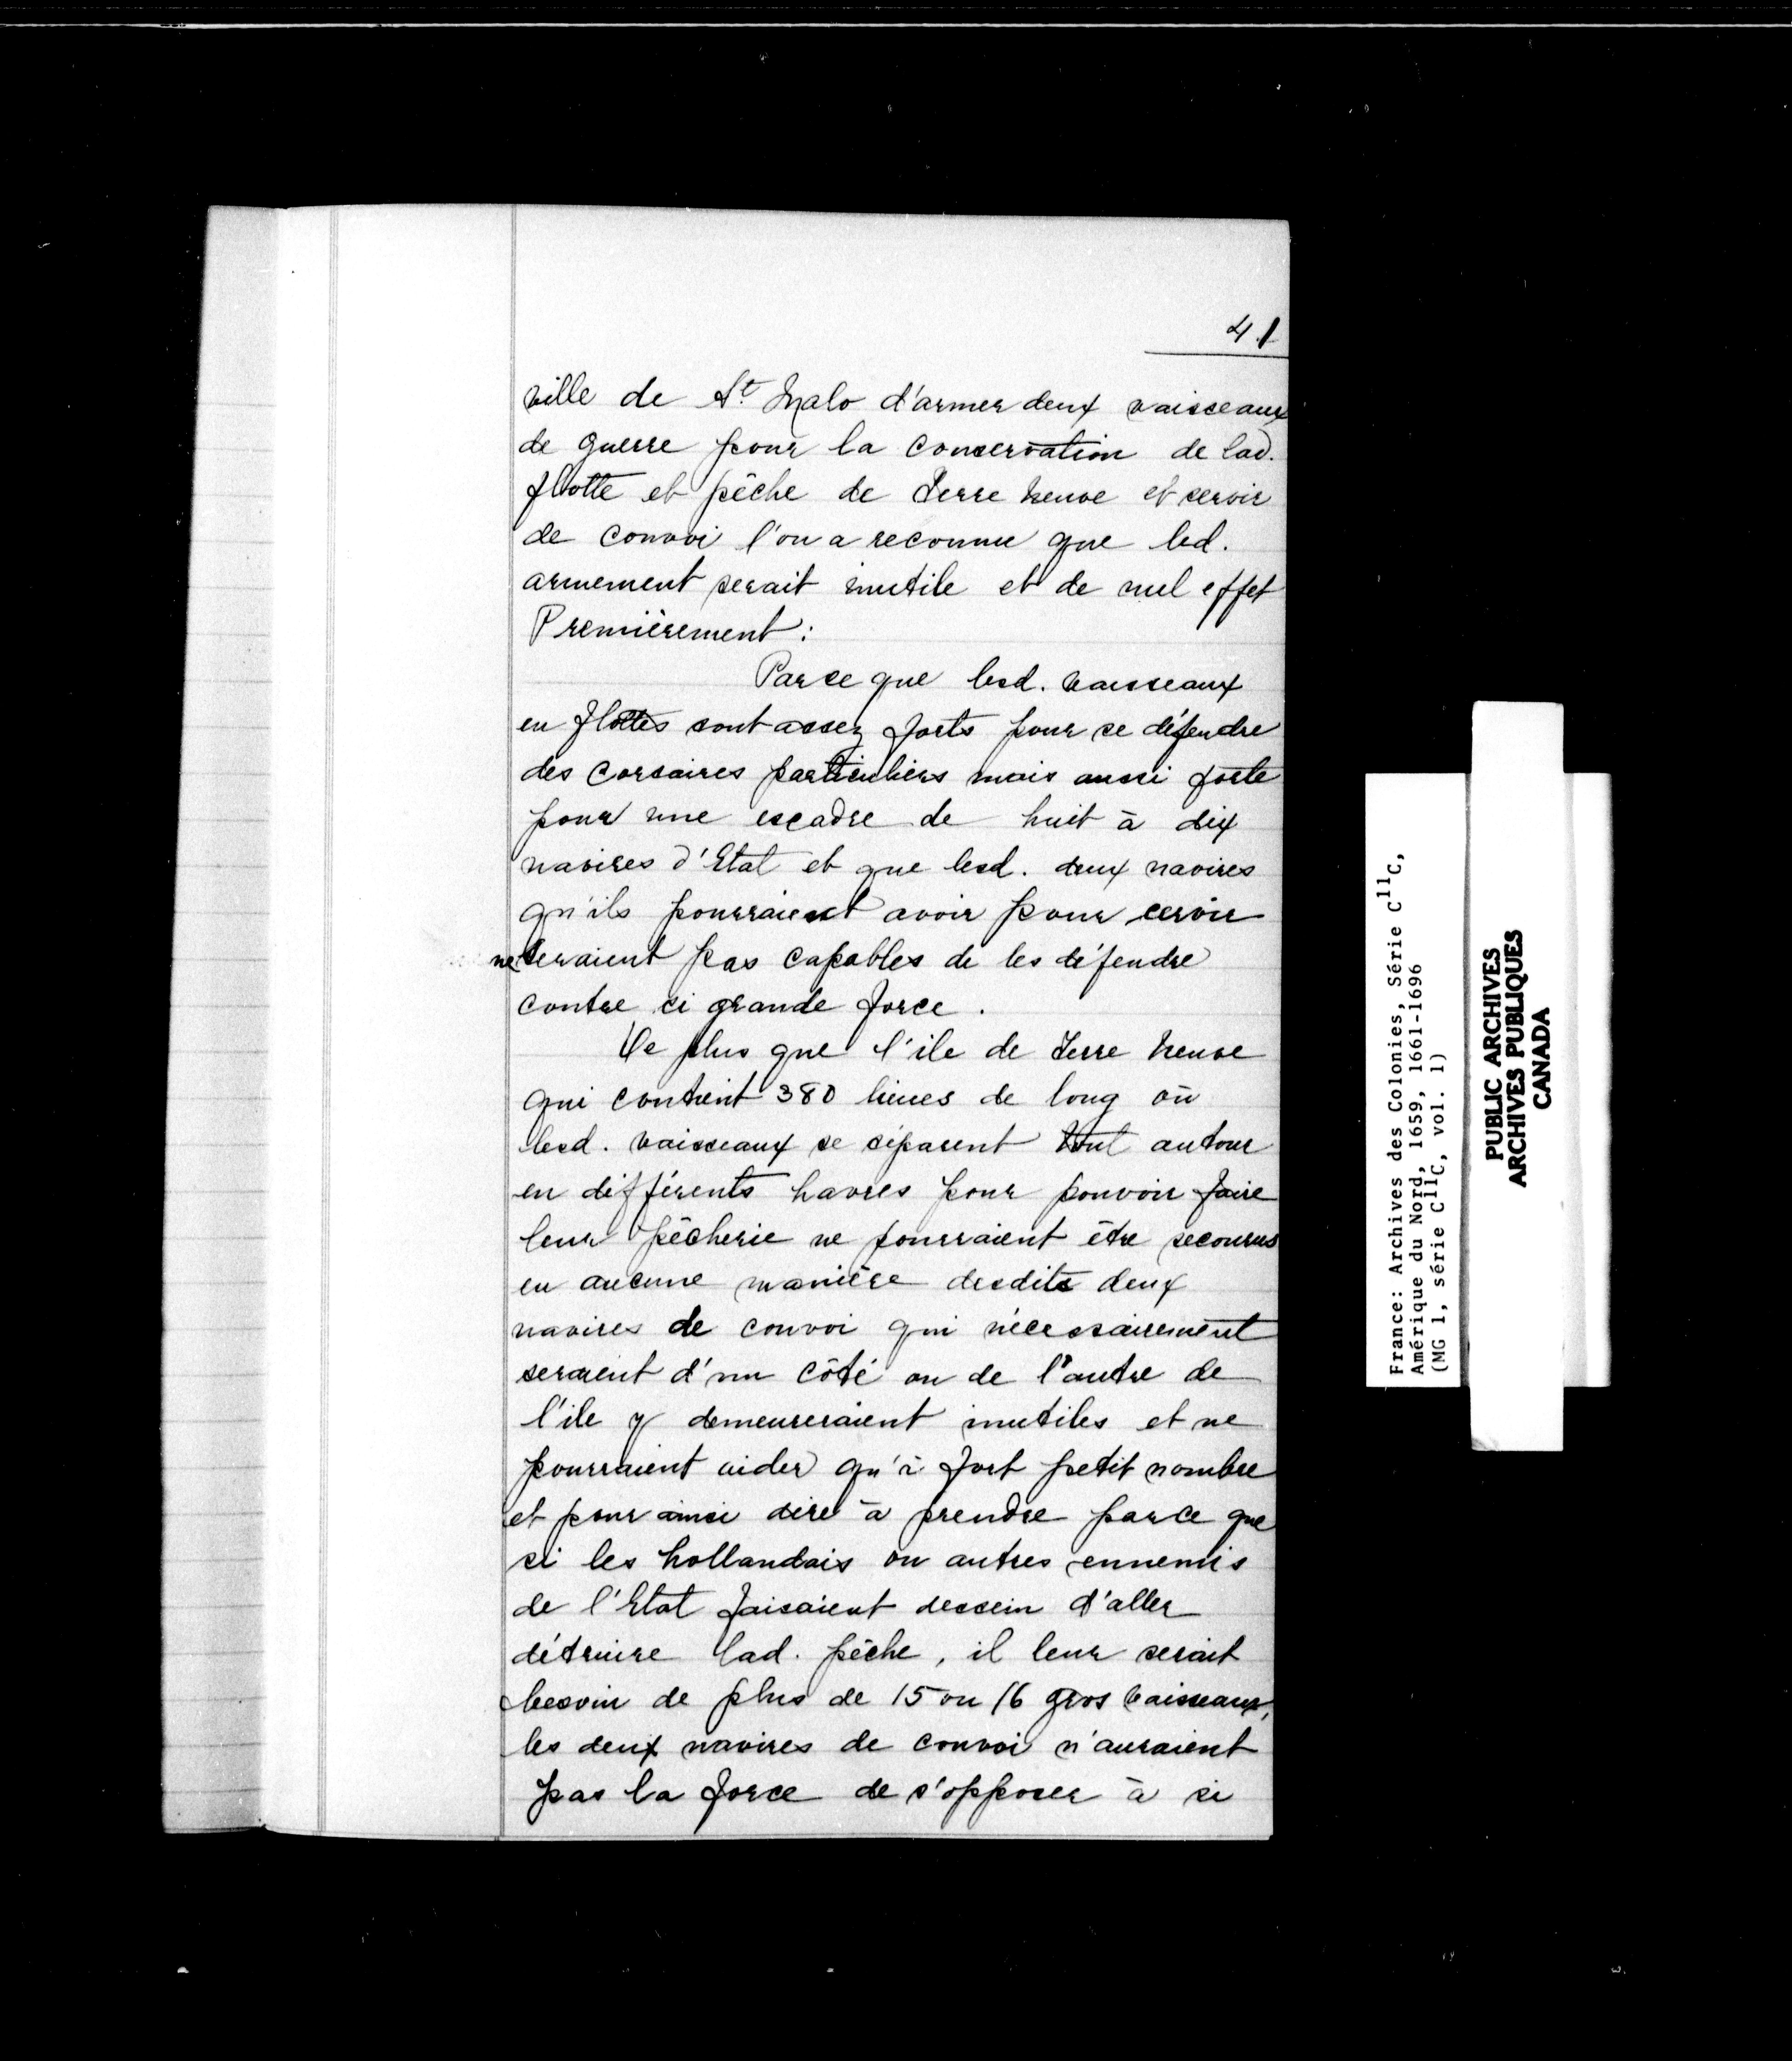 41
ville de St. Malo d'armer deux vaisseaux
de guerre pour la conservation de lad.
flotte et pêche de Terre Neuve et servir
de convoi l'on a reconnu que led.
armement serait inutile et de nul effet
Premièrement :
Parce que lesd. vaisseaux
en flottes sont assez forts pour se défendre
des corsaires particuliers mais aussi forte
pour une escadre de huit à dix
navires d'Etat et que lesd. deux navires
qu'ils pourraient avoir pour servir
ne seraient pas capables de les défendre
contre si grande force.
De plus que l'ile de Terre Neuve
qui contient 380 lieues de long où
lesd. vaisseaux se séparent tout autour
en différents havres pour pouvoir faire
leur pêcherie ne pourraient être secourus
en aucune manière desdits deux
navires de convoi qui nécessairement
seraient d'un côté ou de l'autre de
l'ile y demeureraient inutiles et ne
pourraient aider qu'à fort petit nombre
et pour ainsi dire à prendre parce que
si les hollandais ou autres ennemis
de l'Etat faisaient dessein d'aller
détruire lad. pêche, il leur serait
besoin de plus de 15 ou 16 gros vaisseaux,
les deux navires de convoi n'auraient
pas la force de s'opposer à si
France: Archives des Colonies, Série C11C,
Amérique du Nord, 1659, 1661-1696
(MG 1, série C11C, vol. 1)
PUBLIC ARCHIVES
ARCHIVES PUBLIQUES
CANADA